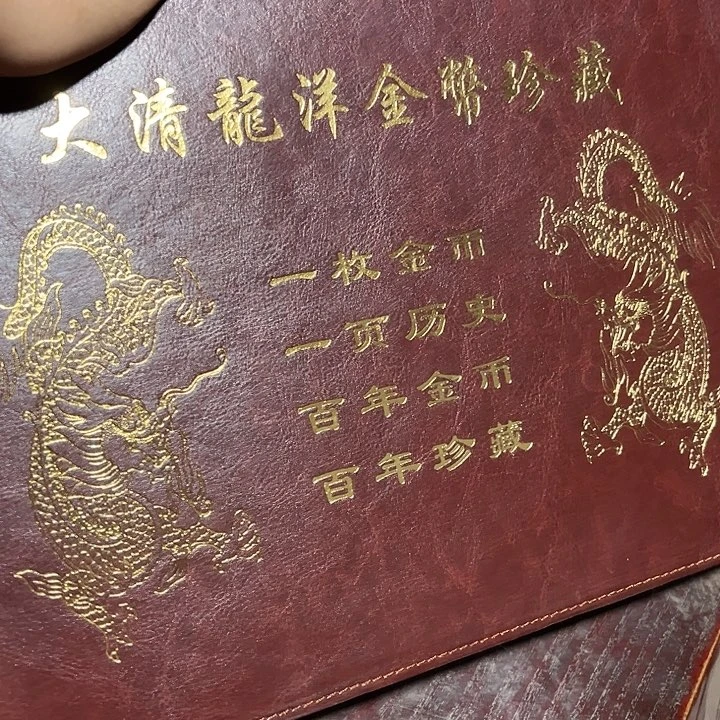 大清龍洋金幣珍藏
一枚金币
一页历史
百年金币
百年珍藏